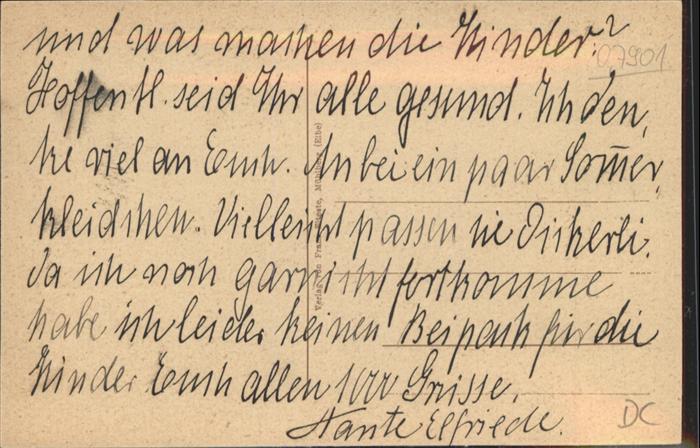 und was machen die Kinder?
07901
Hoffentl. seid Ihr alle gesund. Ich den,
ke viel an Euch. Anbei ein paar Som̅er,
kleidchen. Vielleicht passen sie Dickerli.
Da ich noch garnicht fortkomme
habe ich leider keinen Beipack für die
Kinder Euch allen 1000 Grüsse.
Tante Elfriede.
DC